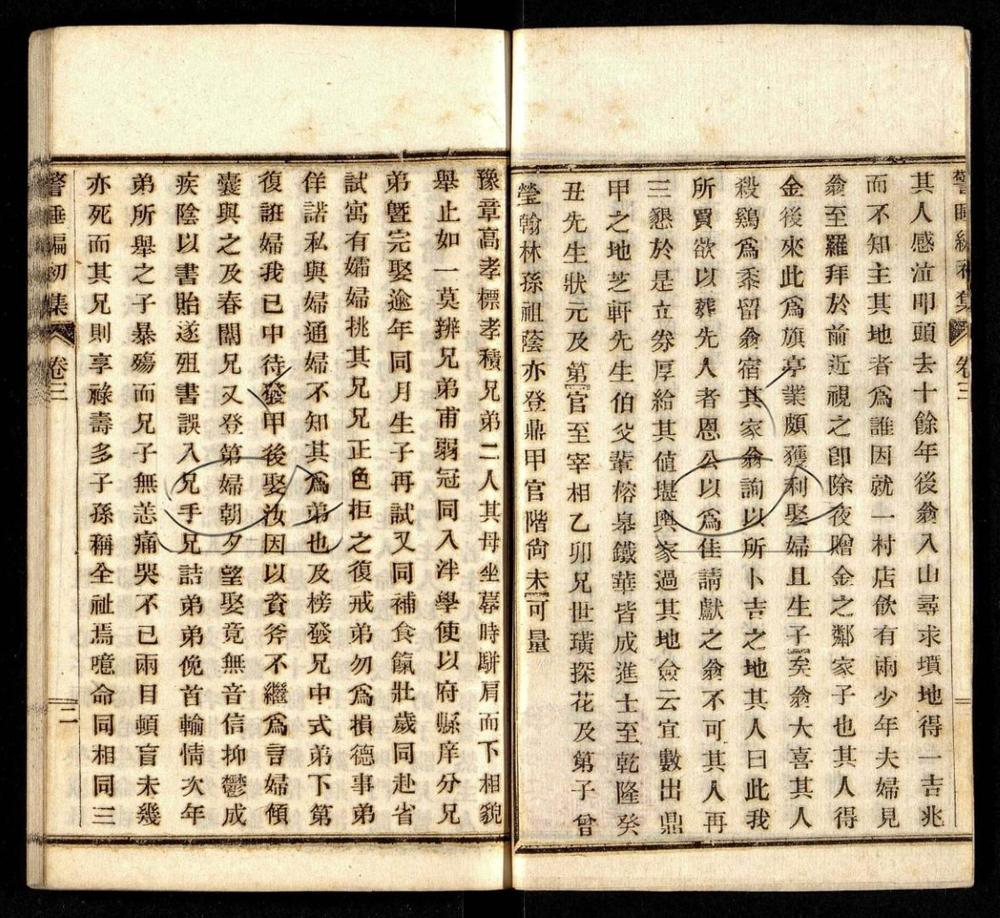 其人感泣叩頭去十餘年後翁入山尋求墳地得一吉兆
而不知主其地者為誰因就一村店飲有兩少年夫婦見
翁至羅拜於前近視之卽除夜贈金之鄰家子也其人得
金後來此為旗亭業頗獲利娶婦且生子矣翁大喜其人
殺鷄為黍留翁宿其家翁詢以所卜吉之地其人曰此我
所買欲以葬先人者恩公以為佳請獻之翁不可其人再
三懇於是立劵厚給其値堪輿家過其地僉云宜數出鼎
甲之地芝軒先生伯父輩榕臯鐵華皆成進士至乾隆癸
丑先生狀元及第官至宰相乙卯兄世璜探花及第子曾
瑩翰林孫祖蔭亦登鼎甲官階尙未可量
卷三
豫章高孝標孝積兄弟二人其母坐蓐時駢肩而下相貌
舉止如一莫辨兄弟甫弱冠同入泮學使以府縣庠分兄
弟曁完娶逾年同月生子再試又同補食餼壯歲同赴省
試寓有孀婦挑其兄兄正色拒之復戒弟勿為損德事弟
佯諾私與婦通婦不知其為弟也及榜發兄中式弟下第
復誑婦我已中待發甲後娶汝因以資斧不繼為言婦傾
囊與之及春闈兄又登第婦朝夕望娶竟無音信抑鬱成
疾陰以書貽遂殂書誤入兄手兄詰弟弟俛首輸情次年
弟所舉之子暴殤而兄子無恙痛哭不已兩目頓盲未幾
亦死而其兄則享祿壽多子孫稱全祉焉噫命同相同三
警睡編初集 卷三 二